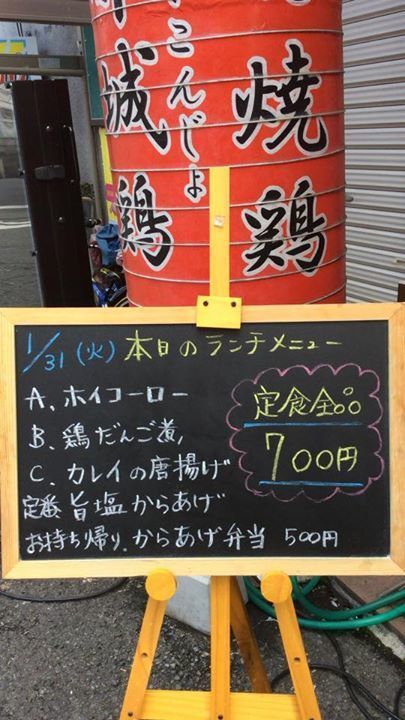 城鶏
こんじょ
焼鶏
1/31 (火) 本日のランチメニュー
A、ホイコーロー
B、鶏だんご煮、
C、カレイの唐揚げ
定番 旨塩からあげ
お持ち帰り、からあげ弁当 500円
定食全品
700円